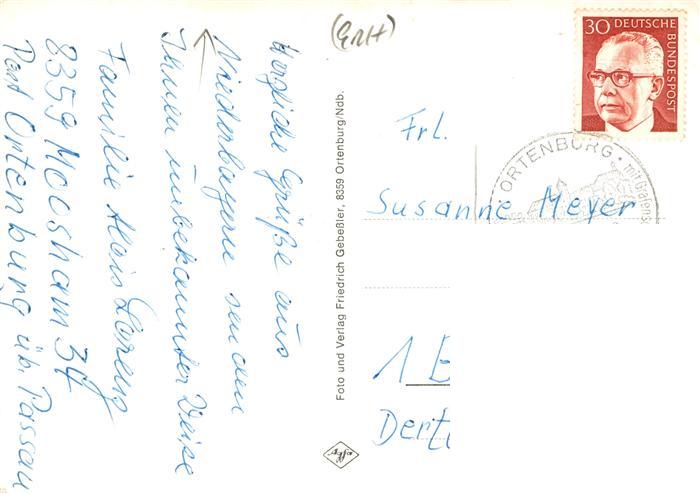 Herzliche Grüße aus
Niederbayern senden
Ihnen unbekannter Weise
Familie Alois Lorenz
8359 Moosham 34
Post Ortenburg üb. Passau
Foto und Verlag Friedrich Gebeßler, 8359 Ortenburg/Ndb.
30 DEUTSCHE
BUNDESPOST
ORTENBURG · mit Grafensc
Frl.
Susanne Meyer
1 B